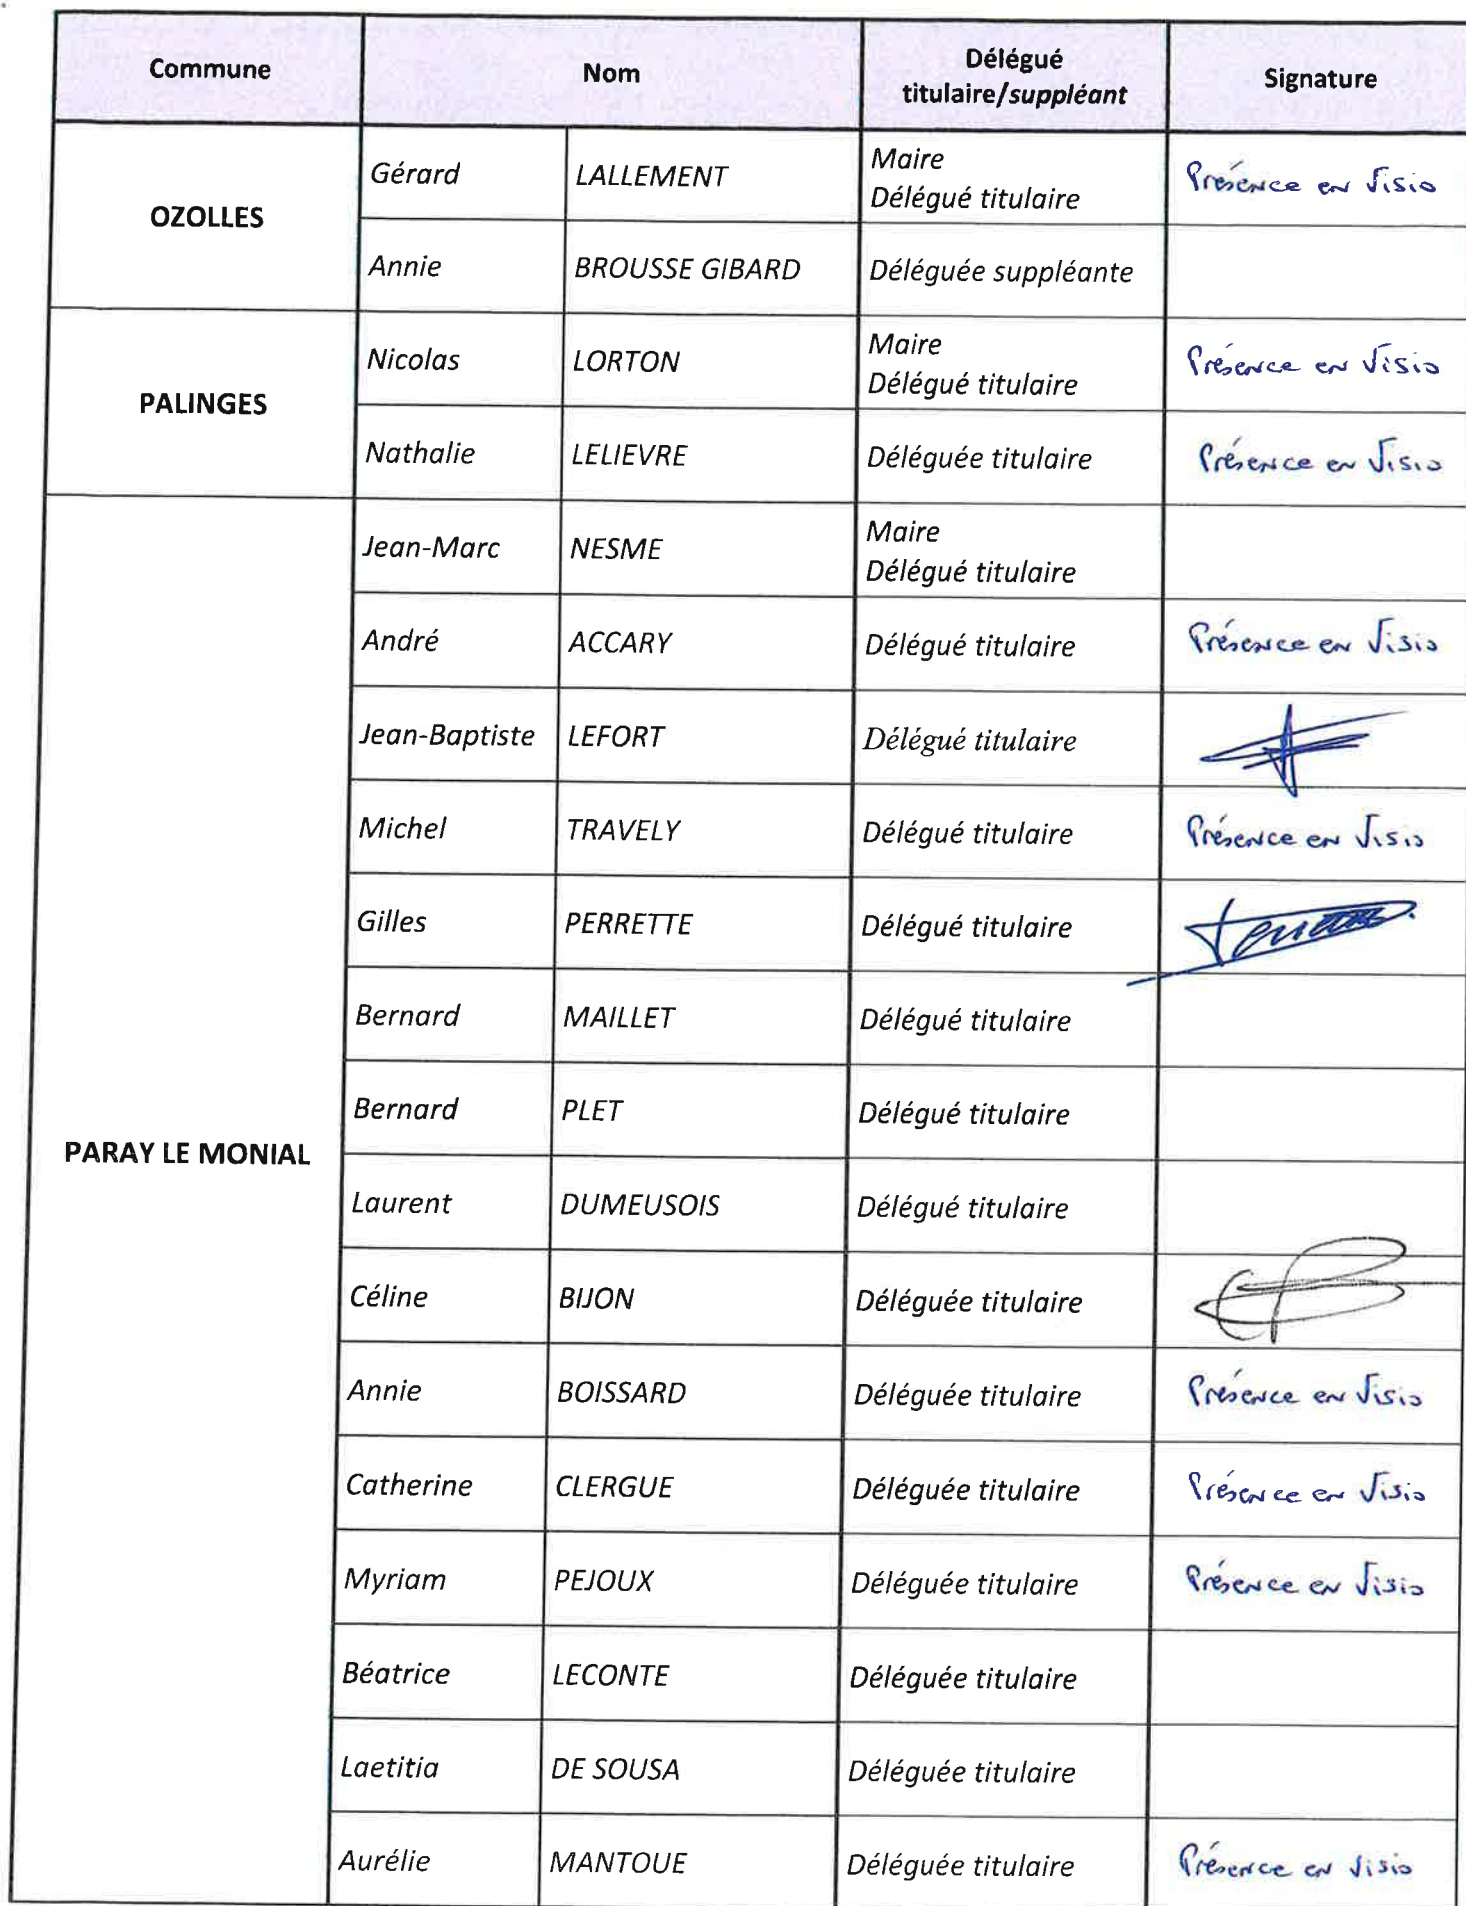 Commune
Nom
Délégué
titulaire/suppléant
Signature
OZOLLES
Gérard
LALLEMENT
Maire
Délégué titulaire
Présence en Visio
Annie
BROUSSE GIBARD
Déléguée suppléante
PALINGES
Nicolas
LORTON
Maire
Délégué titulaire
Présence en Visio
Nathalie
LELIEVRE
Déléguée titulaire
Présence en Visio
PARAY LE MONIAL
Jean-Marc
NESME
Maire
Délégué titulaire
André
ACCARY
Délégué titulaire
Présence en Visio
Jean-Baptiste
LEFORT
Délégué titulaire
Michel
TRAVELY
Délégué titulaire
Présence en Visio
Gilles
PERRETTE
Délégué titulaire
Bernard
MAILLET
Délégué titulaire
Bernard
PLET
Délégué titulaire
Laurent
DUMEUSOIS
Délégué titulaire
Céline
BIJON
Déléguée titulaire
Annie
BOISSARD
Déléguée titulaire
Présence en Visio
Catherine
CLERGUE
Déléguée titulaire
Présence en Visio
Myriam
PEJOUX
Déléguée titulaire
Présence en Visio
Béatrice
LECONTE
Déléguée titulaire
Laetitia
DE SOUSA
Déléguée titulaire
Aurélie
MANTOUE
Déléguée titulaire
Présence en Visio